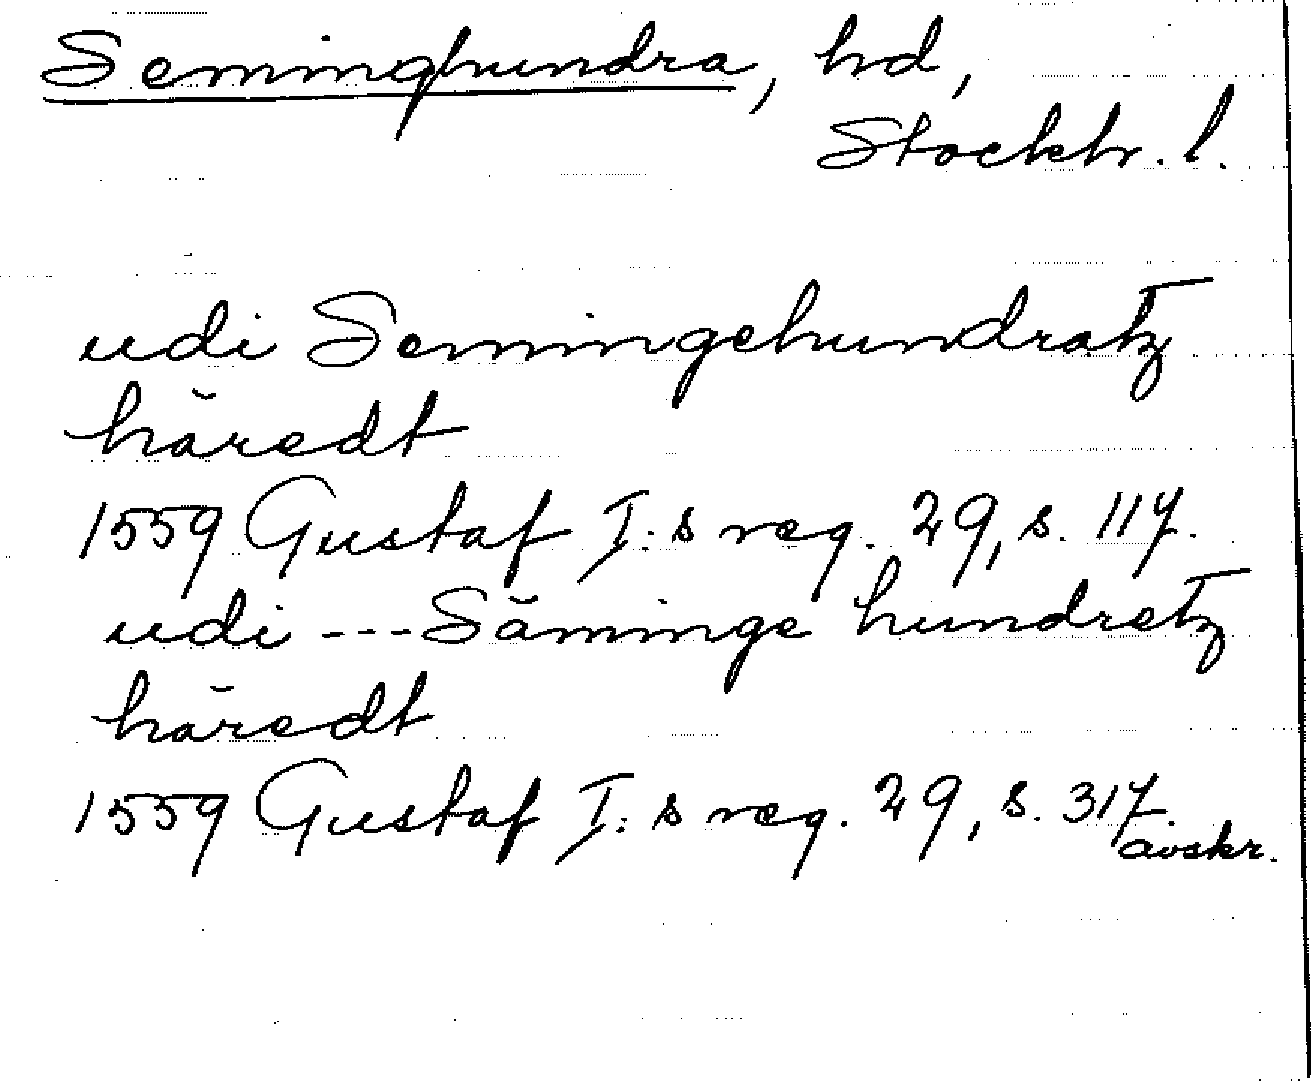 Seminghundra, hd,
Stockh. l.
udi Semingehundratz
häredt
1559 Gustaf I:s reg. 29, s. 117.
udi --- Säminge hundretz
häredt
1559 Gustaf I:s reg. 29, s. 317.
avskr.